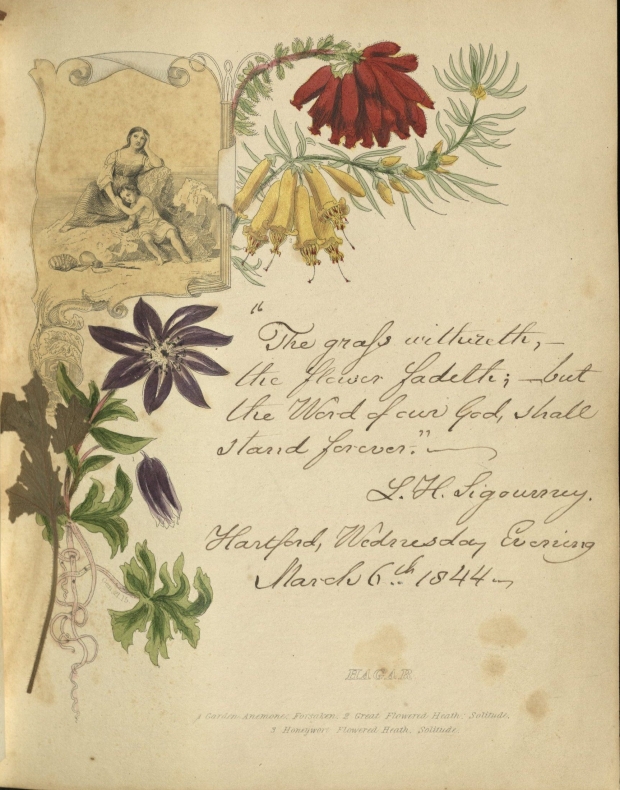 "The grass withereth, —
the flower fadeth; — but
the Word of our God, shall
stand forever." —
L. H. Sigourney.
Hartford, Wednesday Evening
March 6th 1844 —
HAGAR
1 Garden Anemone: Forsaken. 2 Great Flowered Heath: Solitude.
3 Honeywort Flowered Heath. Solitude.